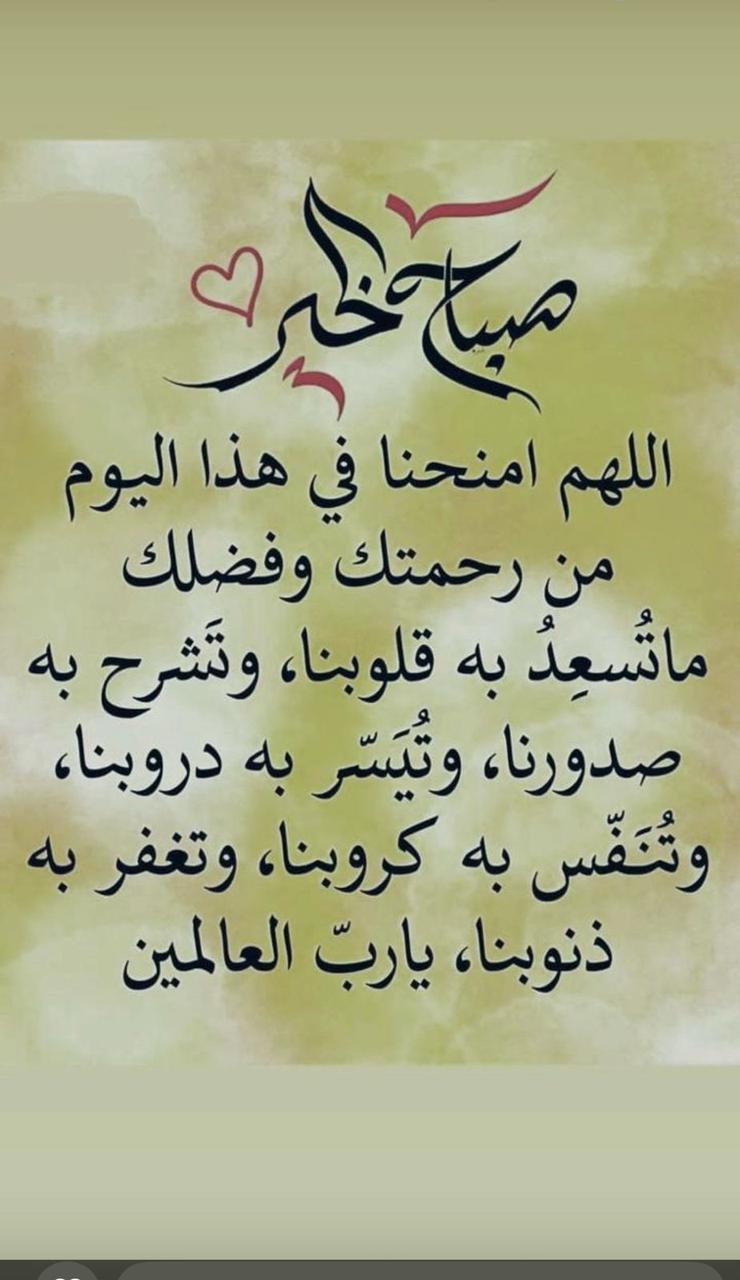 صباح خير
اللهم امنحنا في هذا اليوم
من رحمتك وفضلك
ماتُسعِدُ به قلوبنا، وتَشرح به
صدورنا، وتُيَسّر به دروبنا،
وتُنَفّس به كروبنا، وتغفر به
ذنوبنا، ياربّ العالمين